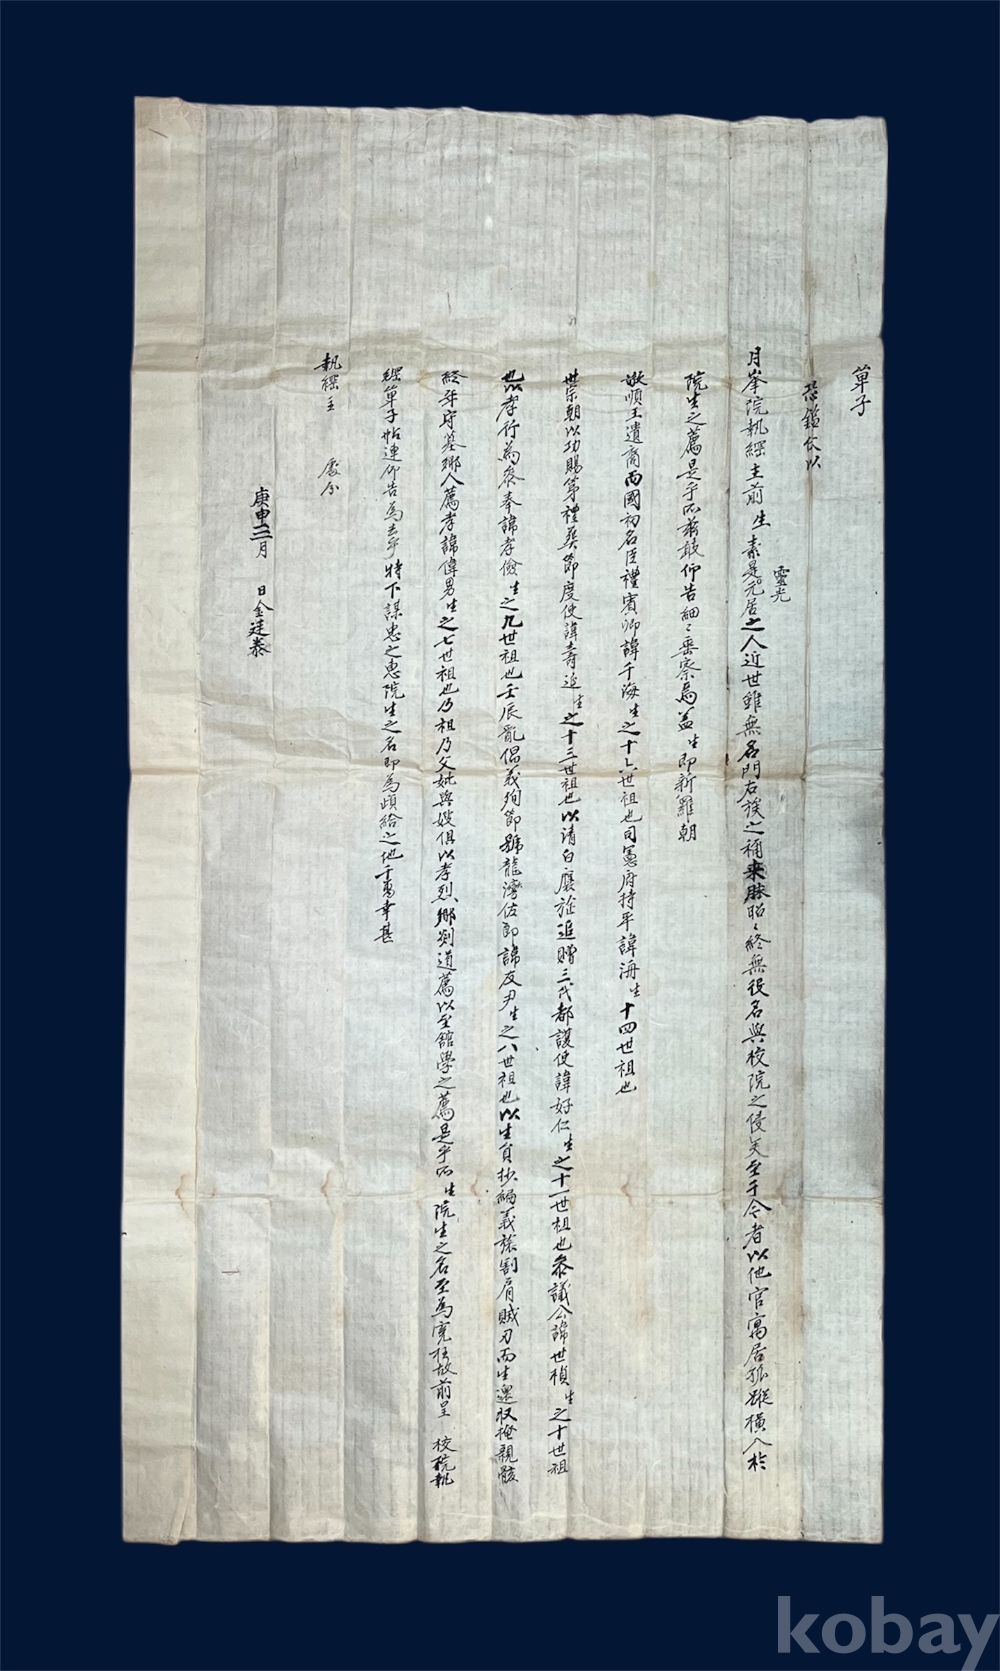 單子
恐鑑伏以
月峯院執綱主前生素是靈光元居之人近世雖無名門右族之稱來勝昭〻終無役名與校院之侵矣至于今者以他官寓居孤蹤橫入於
院生之薦是乎所玆敢仰告細〻垂察焉盖生卽新羅朝
敬順王遺裔而國初名臣禮賓卿諱千海生之十六世祖也司憲府持平諱海生十四世祖也
世宗朝以功賜第禮葬節度使諱壽延生之十三世祖也以淸白廉旌追贈三代都護使諱好仁生之十一世祖也叅議公諱世楨生之十世祖
也以孝行為叅奉諱孝儉生之九世祖也壬辰亂倡義殉節號龍灣佐郞諱友尹生之八世祖也以生員抄綱義旅割肩賊刃而生還收掩親骸
終年守墓鄕人薦孝諱偉男生之七世祖也乃祖乃父妣與嫂俱以孝烈鄕剡道薦以至館學之薦是乎所生院生之名至為寃枉故前呈校院執
綱單子帖連仰告為去乎特下謀忠之惠院生之名卽為頉給之地千萬幸甚
執綱主 處分
庚申三月 日金廷泰
kobay